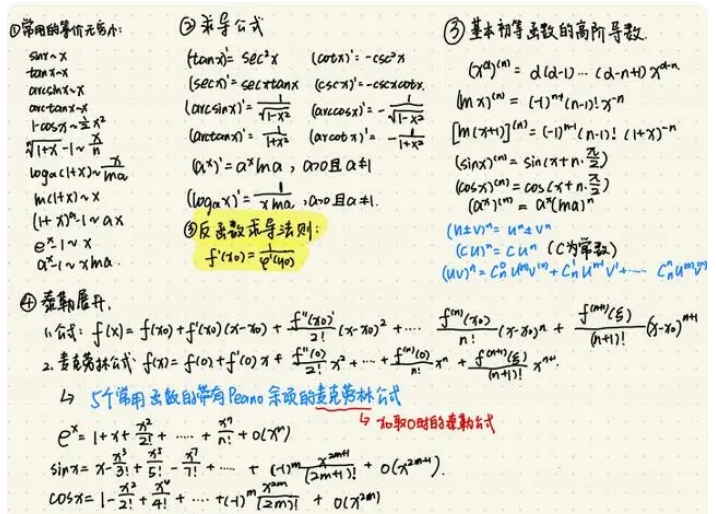 ①常用的等价无穷小:
sinx~x
tanx~x
arcsinx~x
arctanx~x
1-cosx~½x²
ⁿ√(1+x)-1~x/n
logₐ(1+x)~x/lna
ln(1+x)~x
(1+x)ᵃ-1~ax
eˣ-1~x
aˣ-1~xlna
②求导公式
(tanx)'=sec²x (cotx)'=-csc²x
(secx)'=secxtanx (cscx)'=-cscxcotx
(arcsinx)'=1/√(1-x²) (arccosx)'=-1/√(1-x²)
(arctanx)'=1/(1+x²) (arccotx)'=-1/(1+x²)
(aˣ)'=aˣlna, a>0且a≠1
(logₐx)'=1/(xlna), a>0且a≠1.
③反函数求导法则:
f'(x₀)=1/φ'(y₀)
③基本初等函数的高阶导数.
(x^α)^(n)=α(α-1)…(α-n+1)x^(α-n)
(lnx)^(n)=(-1)^(n-1)(n-1)!x^(-n)
[ln(x+1)]^(n)=(-1)^(n-1)(n-1)!(1+x)^(-n)
(sinx)^(n)=sin(x+n·π/2)
(cosx)^(n)=cos(x+n·π/2)
(aˣ)^(n)=aˣ(lna)ⁿ
(u±v)ⁿ=uⁿ±vⁿ
(cu)ⁿ=cuⁿ (C为常数)
(uv)ⁿ=Cₙ⁰u^(n)v^(0)+Cₙ¹u^(n-1)v'+…… Cₙⁿu^(0)v^(n)
④泰勒展开.
1.公式: f(x)=f(x₀)+f'(x₀)(x-x₀)+f''(x₀)/2!(x-x₀)²+… f^(n)(x₀)/n!(x-x₀)ⁿ+f^(n+1)(ξ)/(n+1)!(x-x₀)^(n+1)
2.麦克劳林公式: f(x)=f(0)+f'(0)x+f''(0)/2!x²+…+f^(n)(0)/n!xⁿ+f^(n+1)(ξ)/(n+1)!x^(n+1).
↳ 5个常用函数的带有Peano余项的麦克劳林公式
↳ x₀取0时的泰勒公式
eˣ=1+x+x²/2!+……+xⁿ/n!+o(xⁿ)
sinx=x-x³/3!+x⁵/5!-x⁷/7!+……+(-1)^m x^(2m+1)/(2m+1)!+o(x^(2m+1)).
cosx=1-x²/2!+x⁴/4!+…+(-1)^m x^(2m)/(2m)!+o(x^(2m))